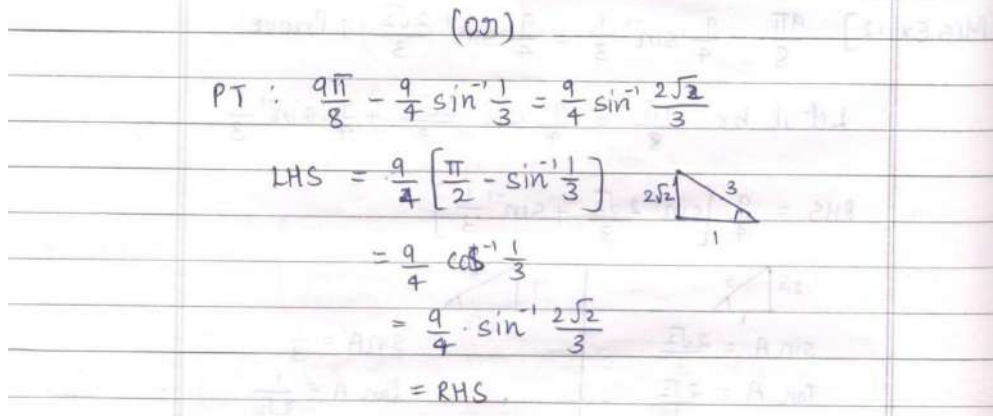 (or)
PT : 9π/8 - 9/4 sin⁻¹ 1/3 = 9/4 sin⁻¹ 2√2/3
LHS = 9/4 [π/2 - sin⁻¹ 1/3]
2√2 3
1
= 9/4 cos⁻¹ 1/3
= 9/4 . sin⁻¹ 2√2/3
= RHS